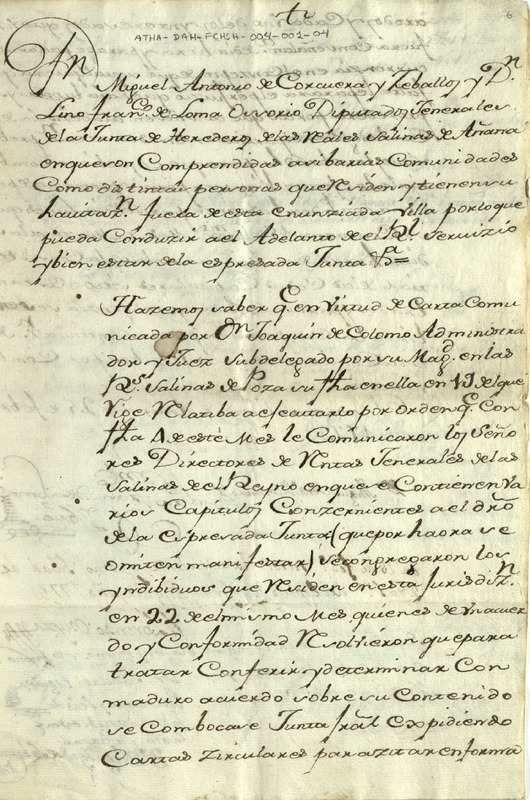 ATHA-DAH-FCHSH-004-001-04
6
Dn Miguel Antonio de Corcuera y Zeballos y Dn
Lino Franco. de Loma Ossorio Diputados Jenerales
de la Junta de Herederos de las Reales Salinas de Añana
en que son Comprendidas asi barias Comunidades
Como distintas personas que Residen y tienen su
havitazn. fuera de esta enunziada Villa por lo que
pueda Conduzir a el Adelanto de el Rl. Servizio
y bien estar de la espresada Junta &a=
Hazemos saber q. en Virtud de Carta Comu
nicada por Dn Joaquin de Colomo Administra
dor y Juez Subdelegado por su Magd. en las
Rs Salinas de Poza su fha en ella en 19 de el que
Vige Relatiba a efecutarlo por orden q. con
fha 4 de este Mes le Comunicaron los Seño
res Directores de Rentas Jenerales de las
Salinas de el Reyno en que se Contienen Va
rios Capitulos Conzernientes a el dro
de la espresada Junta (que por haora se
omiten manifestar) se congregaron los
yndibiduos que Residen en esta Jurisdizn.
en 22 de el mismo Mes, quienes de Vn acuer
do y Conformidad Resolvieron que para
tratar Conferir y determinar Con
maduro acuerdo sobre su Contenido
se Combocase Junta Jral Expidiendo
Cartas Zirculares para zitar en forma